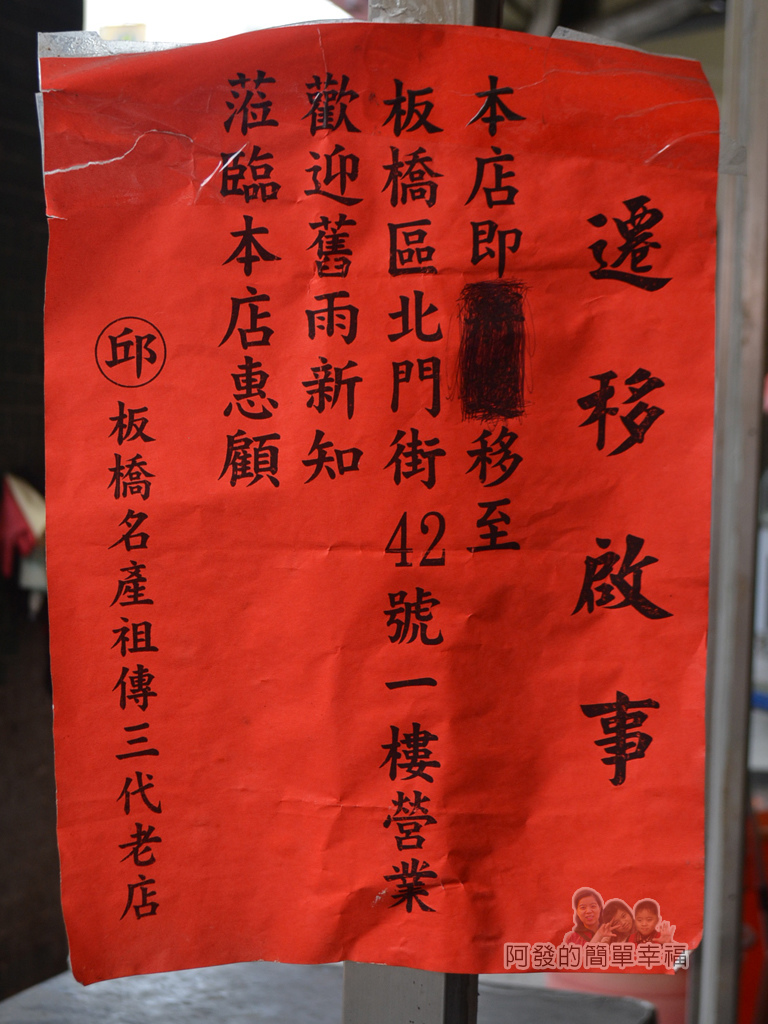 遷移啟事
本店即移至
板橋區北門街42號一樓營業
歡迎舊雨新知
蒞臨本店惠顧
邱板橋名產祖傳三代老店
阿發的簡單幸福